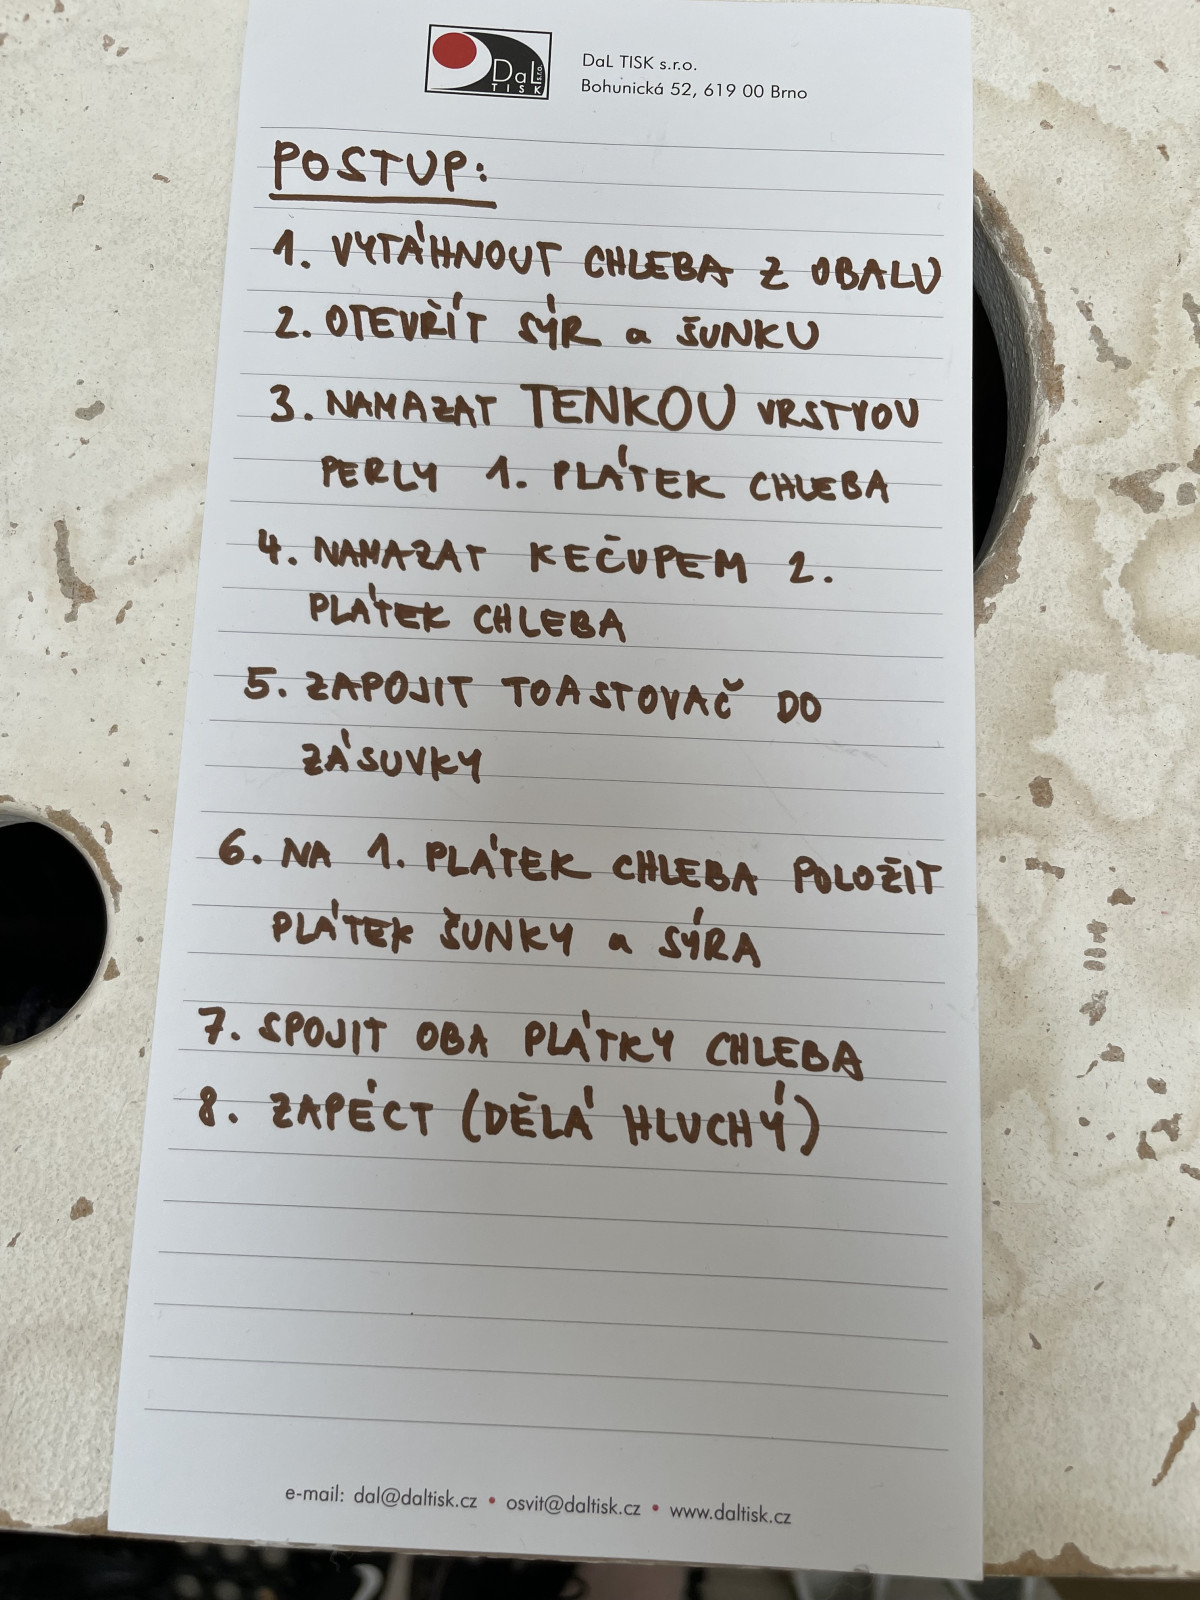 DaL
s.r.o.
TISK
DaL TISK s.r.o.
Bohunická 52, 619 00 Brno
POSTUP:
1. VYTÁHNOUT CHLEBA Z OBALU
2. OTEVŘÍT SÝR a ŠUNKU
3. NAMAZAT TENKOU VRSTVOU
PERLY 1. PLÁTEK CHLEBA
4. NAMAZAT KEČUPEM 2.
PLÁTEK CHLEBA
5. ZAPOJIT TOASTOVAČ DO
ZÁSUVKY
6. NA 1. PLÁTEK CHLEBA POLOŽIT
PLÁTEK ŠUNKY a SÝRA
7. SPOJIT OBA PLÁTKY CHLEBA
8. ZAPÉCT (DĚLÁ HLUCHÝ)
e-mail: dal@daltisk.cz • osvit@daltisk.cz • www.daltisk.cz